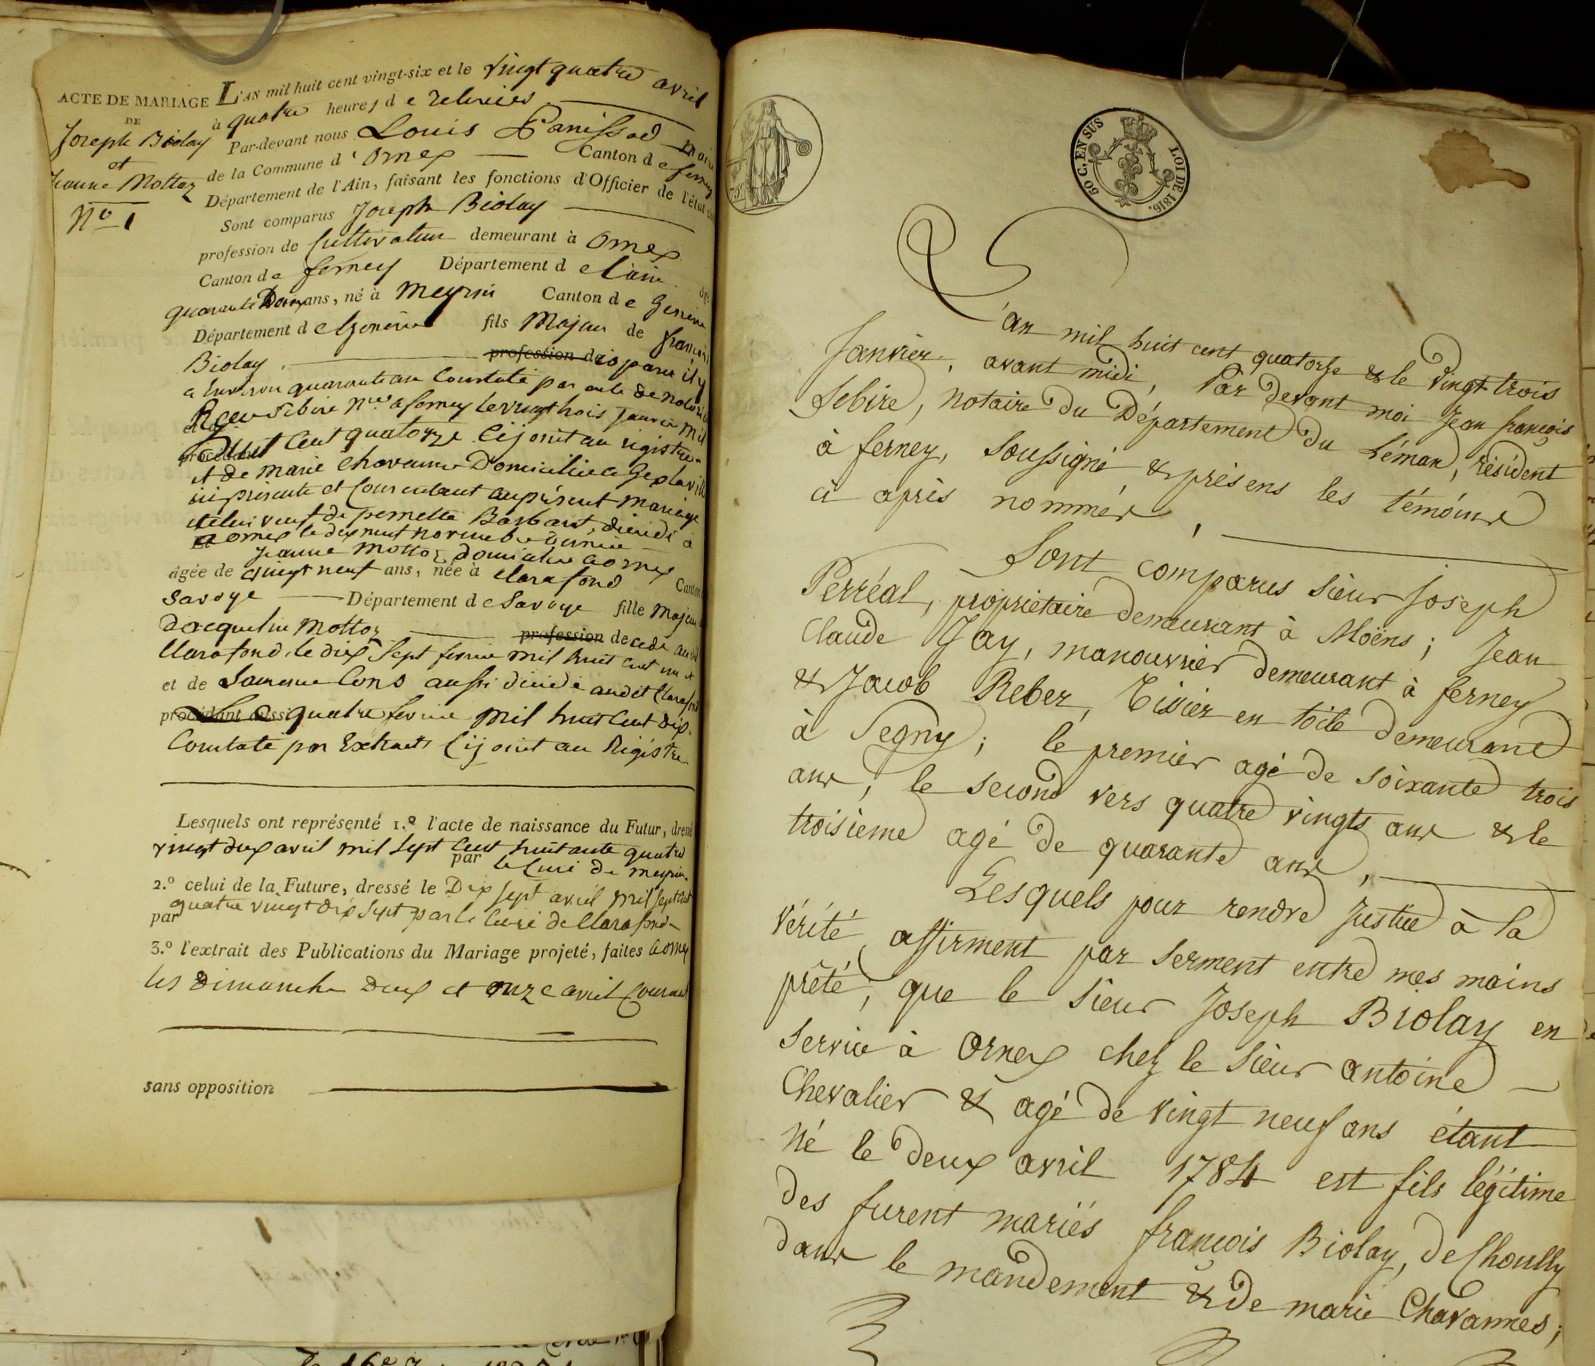 ACTE DE MARIAGE
DE
Joseph Biolay
et
Jeanne Mottaz
N.o 1
L'AN mil huit cent vingt-six et le vingt quatre avril
à quatre heures de relevées
Par-devant nous Louis Panissod Maire
de la Commune d'Ornex Canton de ferney
Département de l'Ain, faisant les fonctions d'Officier de l'état
Sont comparus Joseph Biolay
profession de Cultivateur demeurant à Ornex
Canton de ferney Département de l'ain
quarante Deux ans, né à Meyrin Canton de Geneve
Département de Geneve fils Majeur de françois
Biolay profession de disparu il y
a Environ quarante ans Constaté par acte de Notoriété
Reçu Sebire N.re a ferney le vingt trois Janvier Mil
huit Cent quatorze Cijoint au registre
et de Marie Chavanne Domiciliée a Gex la ville
ici présente et Consentant au présent Mariage
icelui veuf de pernette Barbant, décédé à
ornex le dix neuf novembre Dernier
Jeanne Mottoz domiciliée a ornex
âgée de vingt neuf ans, née à Clarafond Canton
Savoye Département de Savoye fille Majeure
Jacqueline Mottoz profession de cédé audit
Clarafond, le dix Sept fevrier Mil huit Cent un et
et de Jeanne Cons aussi décédé audit Clarafond
procédant aussi Le quatre fevrier Mil huit Cent dix
Constaté par Extraits Cijoint au Régistre
Lesquels ont représenté 1.o l'acte de naissance du Futur, dressé
vingt deux avril mil sept Cent huitante quatre
par le Curé de Meyrin
2.o celui de la Future, dressé le Dix sept avril Mil sept Cent
quatre vingt dix sept par le Curé de Clarafond
par
3.o l'extrait des Publications du Mariage projeté, faites à ornex
les Dimanche Deux et onze avril Courant
sans opposition
50 C. EN SUS
LOI DE 1816.
L'an mil huit cent quatorze & le Vingt-trois
Janvier, avant midi, Par devant moi Jean françois
Sebire, Notaire du Département du Léman, résident
à ferney, Soussigné, & présens les témoins
ci après nommés,
Sont comparus Sieur Joseph
Perréal, propriétaire demeurant à Moëns; Jean
Claude Jay, manouvrier demeurant à ferney
& Jacob Reber, Tisier en toile demeurant
à Segny; le premier agé de soixante trois
ans, le second vers quatre vingts ans & le
troisième agé de quarante ans,
Lesquels pour rendre Justice à la
Vérité, affirment par Serment entre mes mains
prêté, que le Sieur Joseph Biolay en
Service à Ornex chez le Sieur antoine
Chevalier & agé de vingt neuf ans étant
Né le deux avril 1784 est fils légitime
des furent mariés françois Biolay, de Choully
dans le mandement & de marie Chavannes;